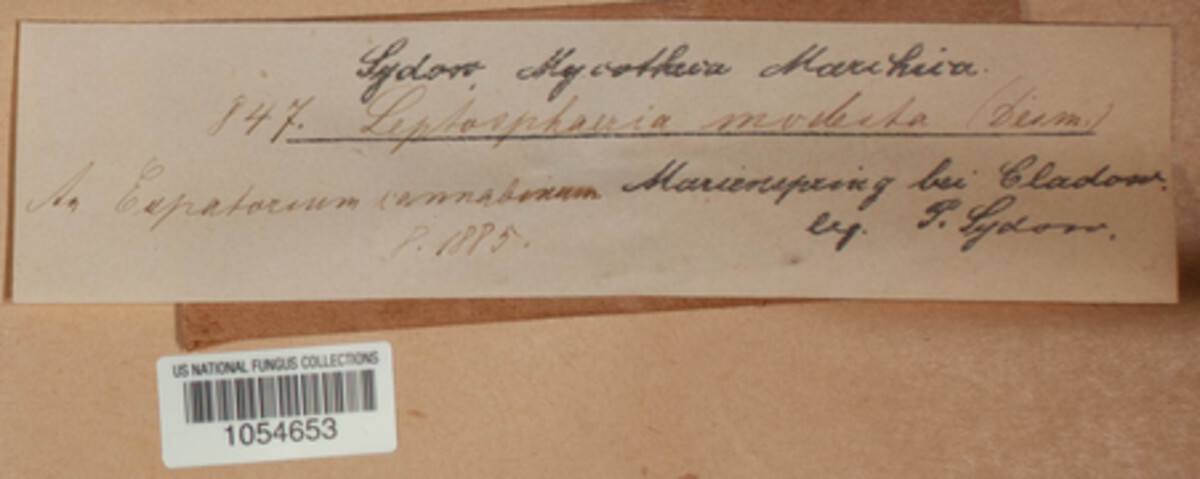 Sydow, Mycotheca Marchica.
847. Leptosphaeria modesta (Desm.)
An Eupatorium cannabinum Marienspring bei Cladow.
8. 1885. leg. P. Sydow.
US NATIONAL FUNGUS COLLECTIONS
1054653